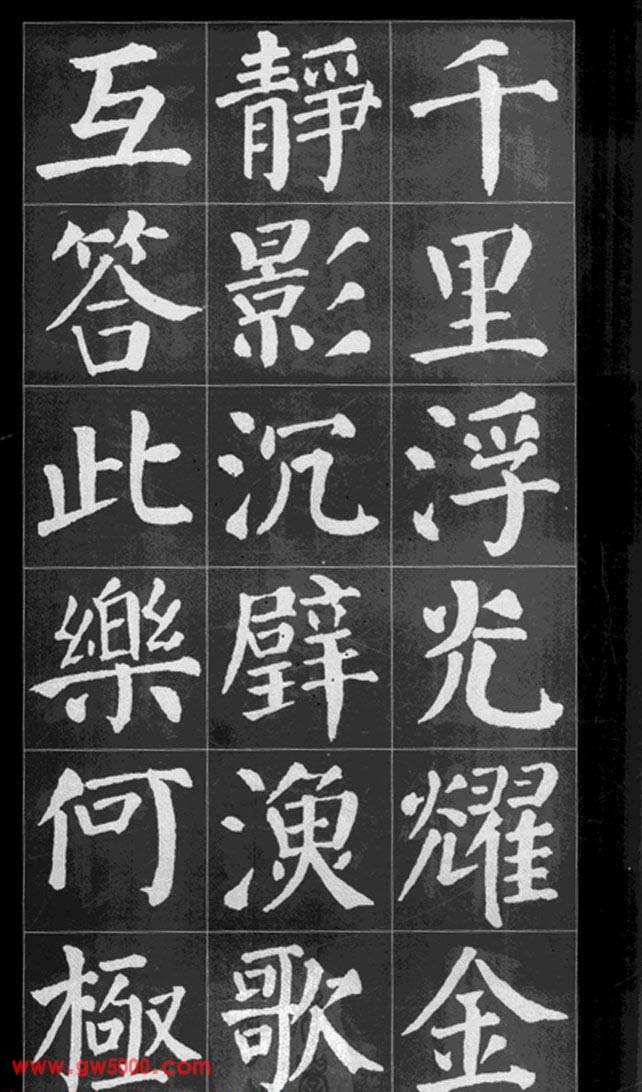 千里浮光耀金
靜影沉璧漁歌
互答此樂何極
www.gw5000.com